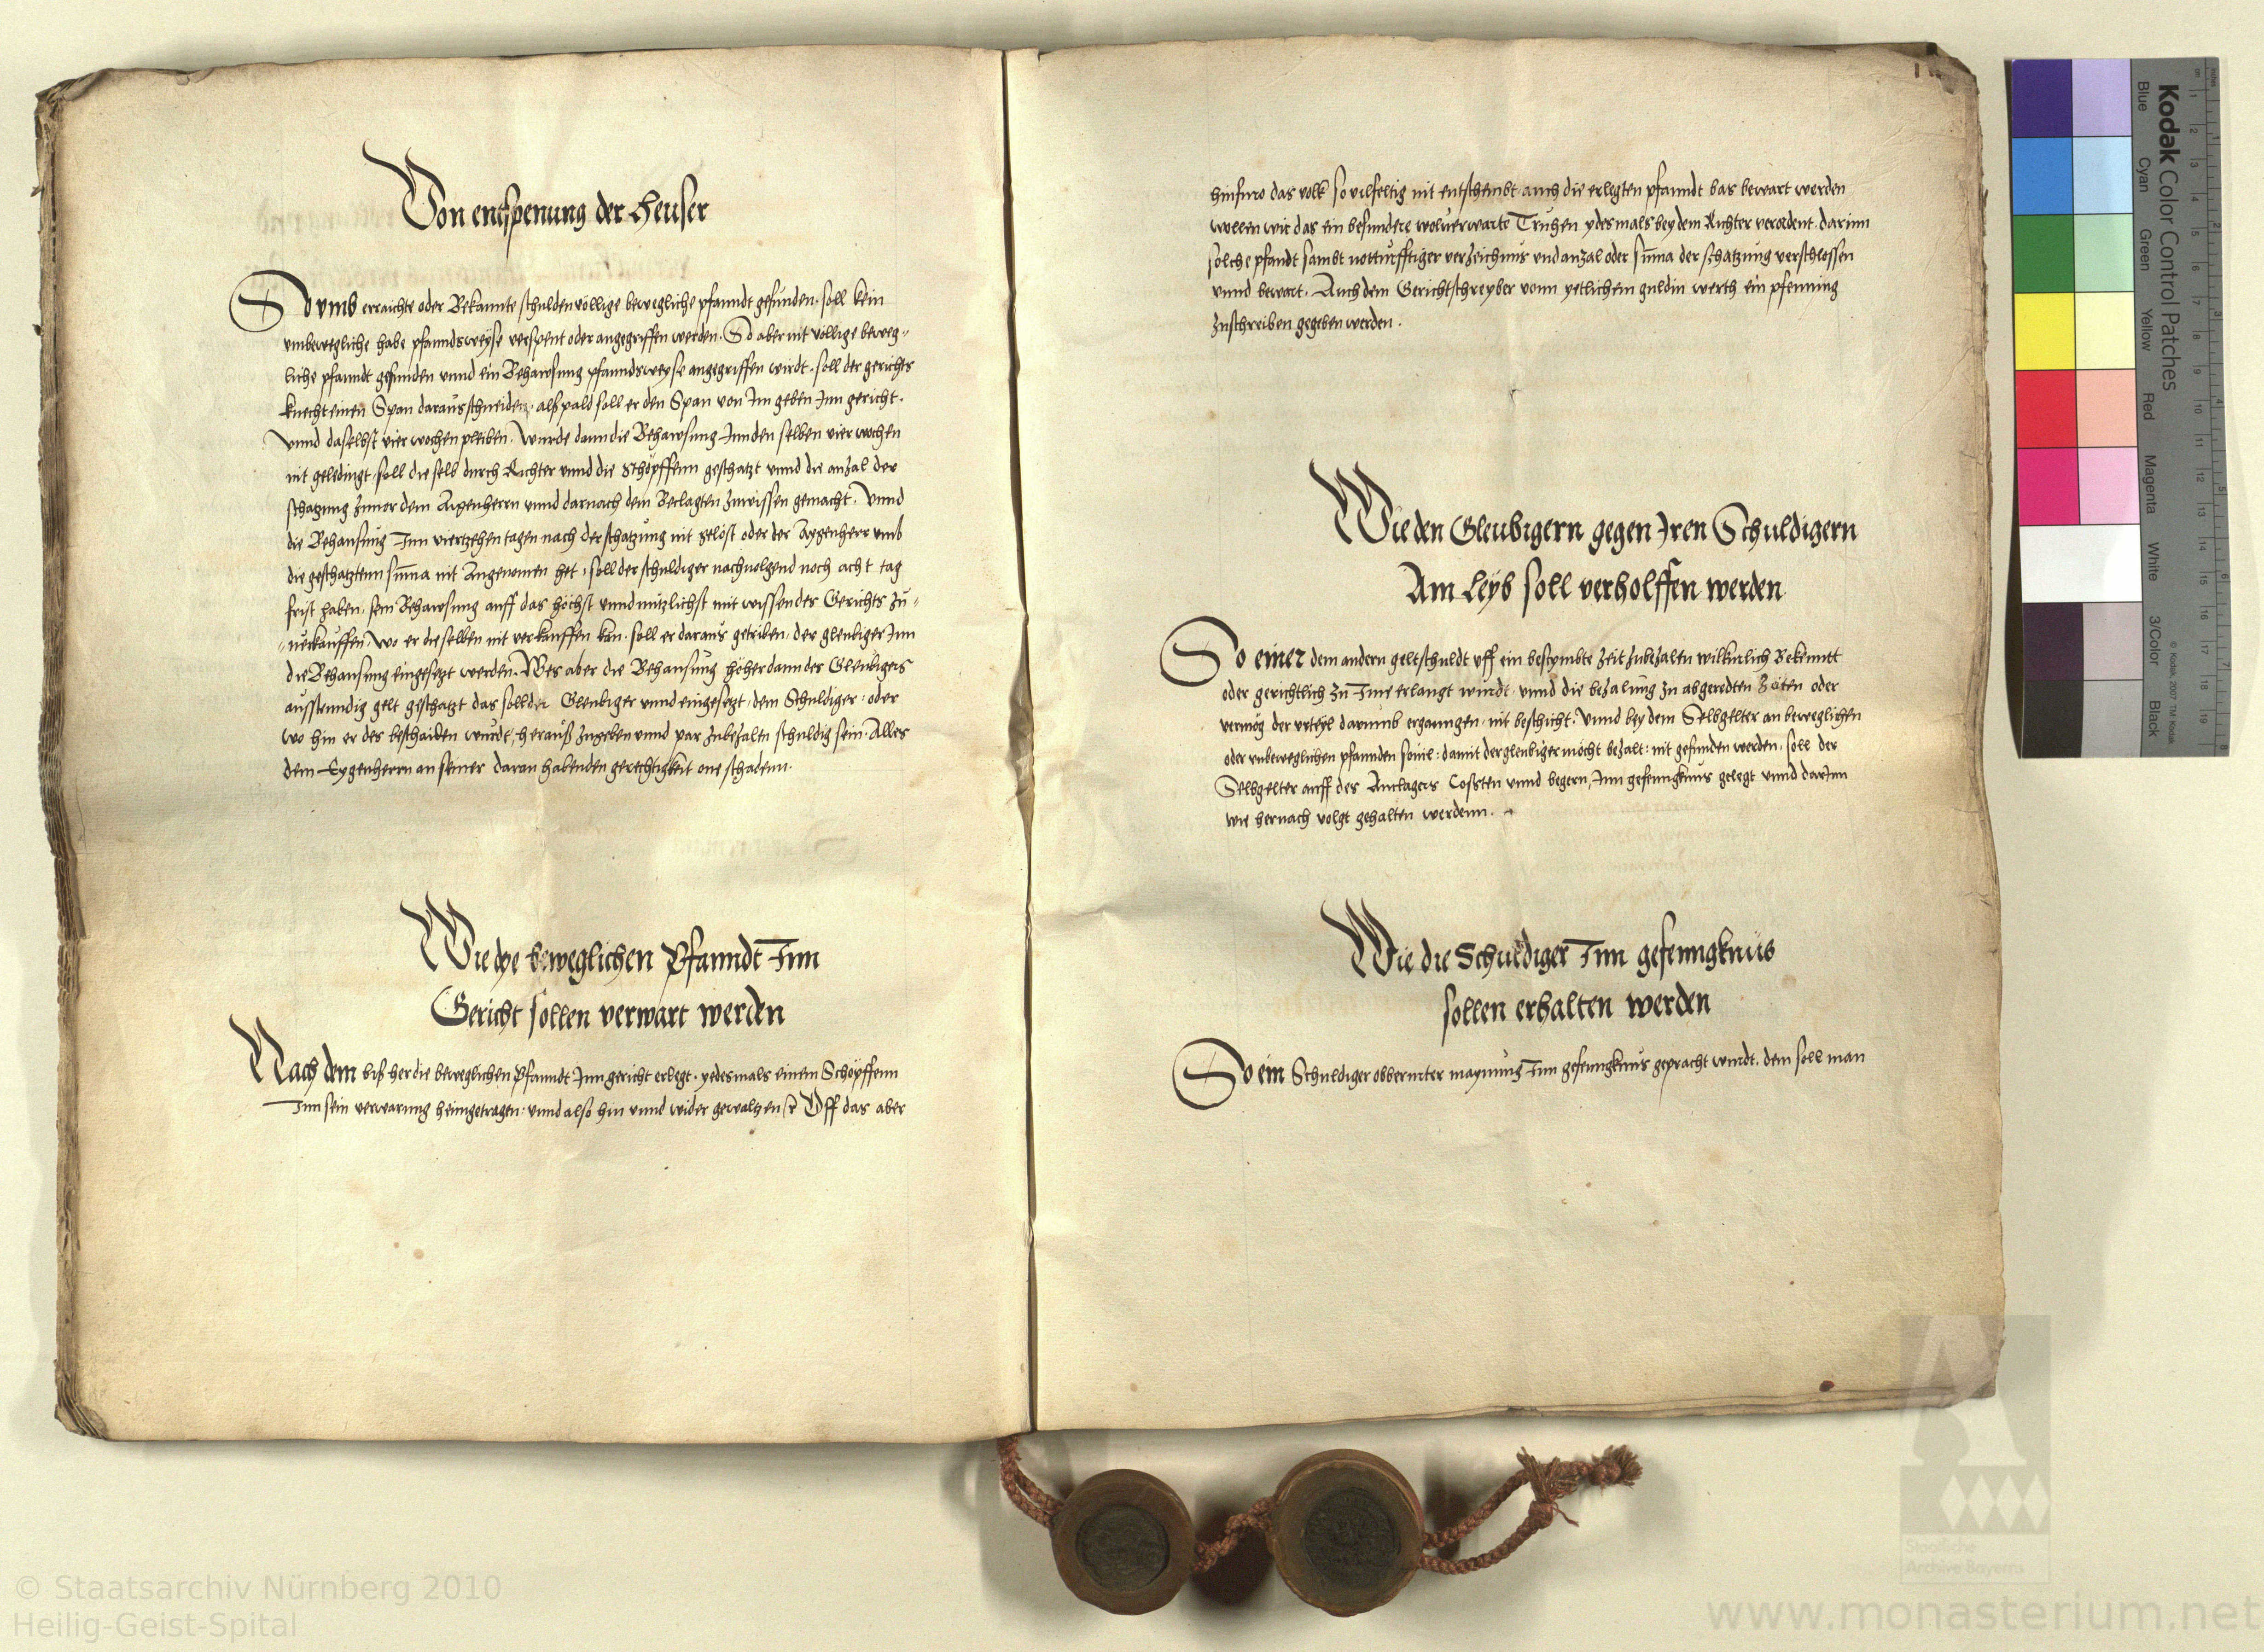 Von entspenung der Heuser
So vmb erraichte oder Bekannte schulden völlige bewegliche pfanndt gefunden, soll kein
vmbewegliche habe pfanndsweyse verspent oder angegriffen werden. So aber nit völlige beweg-
liche pfanndt gefunden vnnd ein Behawsung pfanndsweyse angegriffen wirdt, soll der gerichts
knecht einen Span daraus schneiden, alsspald soll er den Span von Im geben Inn gericht.
Vnnd daselbst vier wochen pleiben. Wurde dann die Behawsung Inn den selben vier wochen
nit geledingt, soll die selb durch Richter vnnd die Schöpffenn geschatzt vnnd die anzal der
schatzung zuuor dem Aigenherrn vnnd darnach dem Beclagten zuwissen gemacht. Vnnd
die Behausung Inn viertzehen tagen nach der schatzung nit gelöst oder der Aygenherr vmb
die geschatztenn suma nit Angenomen het, soll der schuldiger nachuolgend noch acht tag
frist haben, sein Behawsung auff das höchst vnnd nützlichst mit wissen des Gerichts zu-
-uerkauffen, Wo er die selben nit verkauffen kan, soll er daraus getriben, der glenbiger Inn
die Behausung eingesetzt werden. Wes aber die Behausung höher dann des Gleubigers
ausstendig gelt geschatzt das soll der Gleubiger vnnd eingesetzt, dem Schuldiger: oder
wo hin er des beschaiden wurdt, herauß zugeben vnnd par zubezalen schuldig sein. Alles
dem Eygenherrn an seiner daran habenden gerechtigkeit one schadenn.
Wie dye beweglichen Pfanndt Inn
Gericht sollen verwart werden
Nach dem biß her die beweglichen Pfanndt Inn gericht erlegt, yedesmals einem Schöpffenn
Inn sein verwarung heimgetragen: vnnd also hin vnnd wider gewaltzen Vff das aber
hinfuro das volk so vilfeltig nit auch die erlegten pfanndt bas bewart werden
wollen wir das ein besundere woluerwarte Truhen ydesmals bey dem Richter verordent, darinn
solche pfandt sambt notturfftiger verzeichnus vnd anzal oder suma der schatzung verschlossen
vnnd bewart. Auch dem Gerichtschreyber vonn yetlichem guldin werth ein pfenning
zuschreiben gegeben werden.
Wie den Gleubigern gegen Iren Schuldigern
Am Leyb soll verholffen werden
So einer dem andern geltschuldt vff ein bestymbte zeit zubezalen wilkurlich Bekenntt
oder gerichtlich zu Ime erlangt wurdt, vnnd die bezalung zu abgeredten Zeiten oder
vermög der vrteyl darumb erganngen, nit beschicht. Vnnd bey dem Selbgelter an beweglichen
oder vnbeweglichen pfannden souil: damit der gleubiger möcht bezalt: nit gefunden werden, soll der
Selbgelter auff des Anclagers Cossten vnnd begern, Inn gefenngknus gelegt vnnd darInn
wie hernach volgt gehalten werdenn.
Wie die Schuldiger Inn gefenngknüs
sollen erhalten werden
So ein Schuldiger obberurter maynung Inn gefenngknus gepracht wurdt, dem soll man
Kodak Color Control Patches
Blue Cyan Green Yellow Red Magenta White 3/Color Black
© Kodak, 2007 TM: Kodak
© Staatsarchiv Nürnberg 2010
Heilig-Geist-Spital
Staatliche
Archive Bayerns
www.monasterium.net